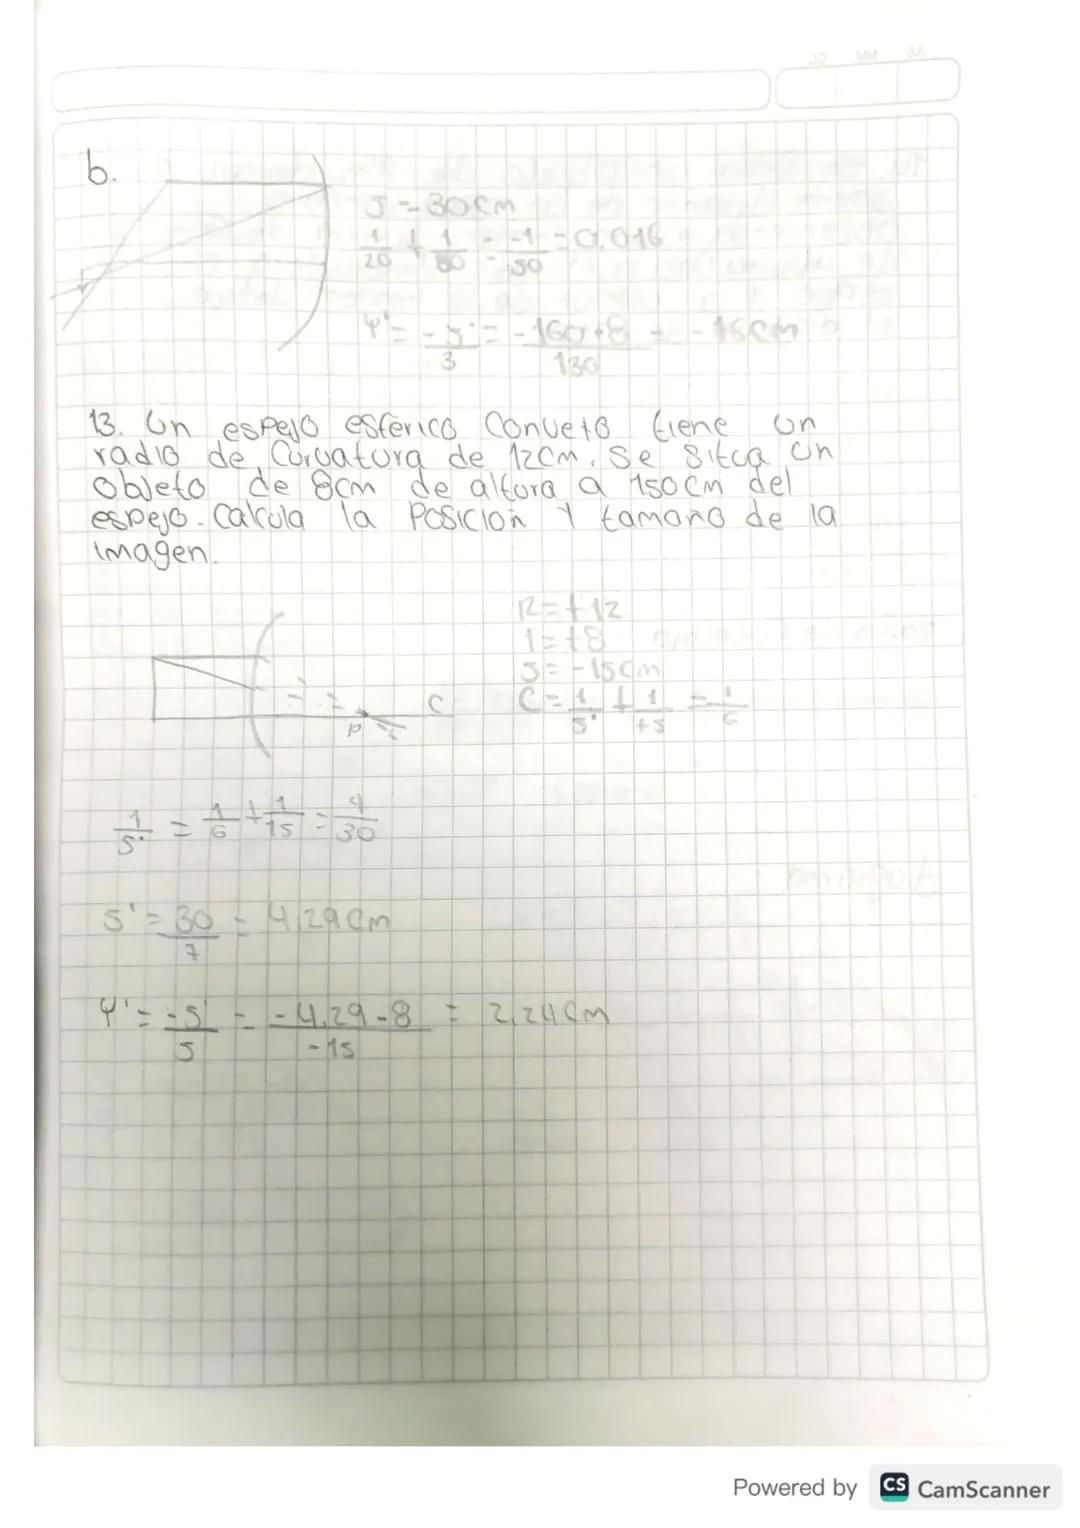 b.
S = 30cm
1/20 + 1/60 = -1/30 = 0,016
Y' = -s'/3 = -160+8/130 = -16cm
13. Un espejo esférico Convexo tiene un
radio de Curvatura de 12cm. Se Sitúa un
objeto de 8cm de altura a 150cm del
espejo. Calcula la Posición Y tamaño de la
imagen.
R=+12
1=+8
S=-15cm
C
C=1/s' + 1/+s = 1/6
P
1/s' = 1/6 + 1/15 = 4/30
S' = 30/7 = 4,29cm
Y' = -s'/s = -4,29-8/-15 = 2,24cm
Powered by CS CamScanner